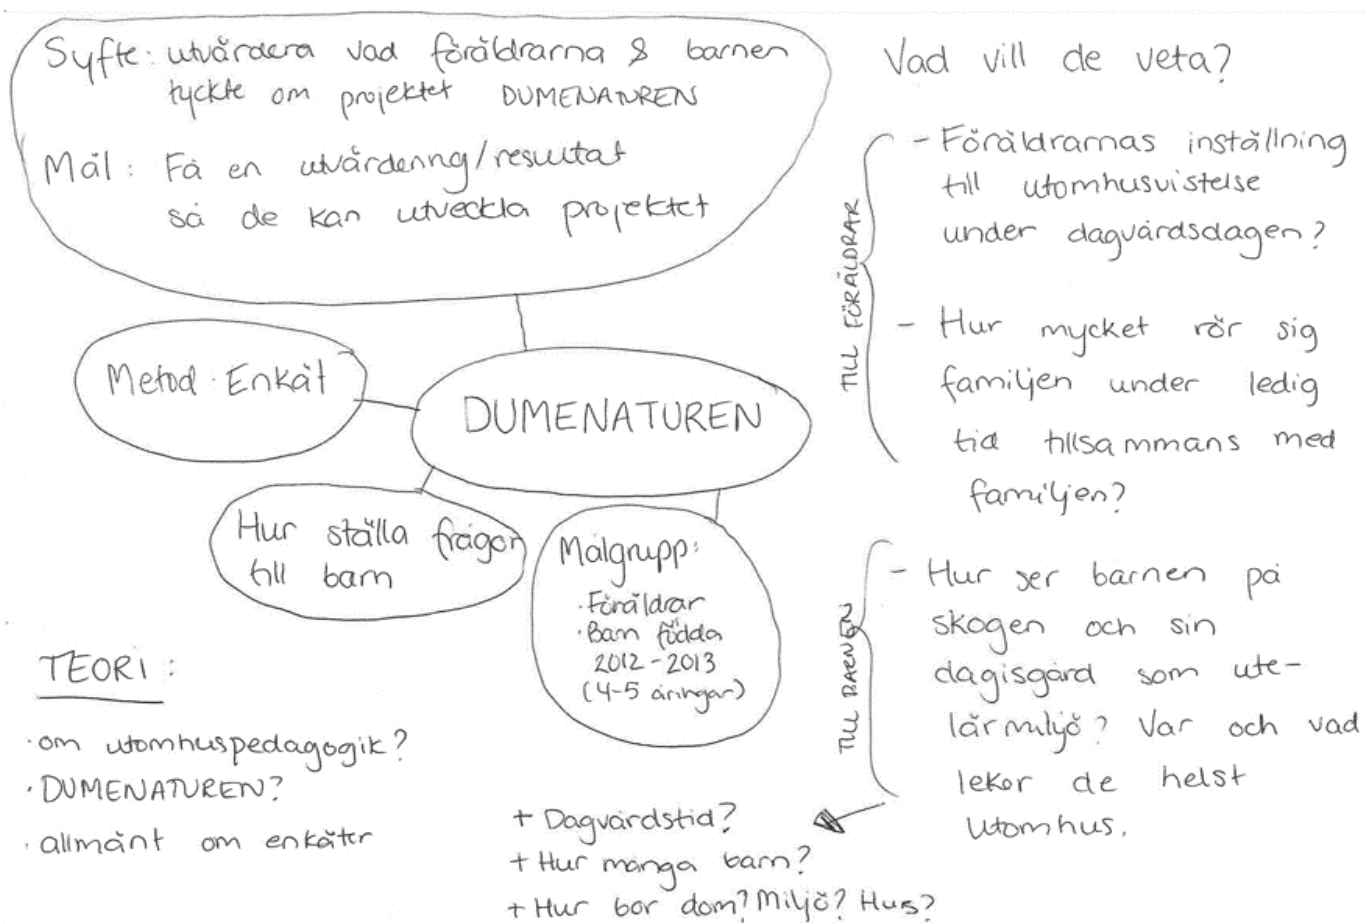 Syfte: utvärdera vad föräldrarna & barnen
tyckte om projektet DUMENATUREN
Mål: Få en utvärdering/resultat
så de kan utveckla projektet
Metod: Enkät
DUMENATUREN
Hur ställa frågor
till barn
Målgrupp:
· Föräldrar
· Barn födda
2012-2013
(4-5 åringar)
TEORI:
· om utomhuspedagogik?
· DUMENATUREN?
· allmänt om enkäter
Vad vill de veta?
TILL FÖRÄLDRAR
- Föräldrarnas inställning
till utomhusvistelse
under dagvårdsdagen?
- Hur mycket rör sig
familjen under ledig
tid tillsammans med
familjen?
TILL BARNEN
- Hur ser barnen på
skogen och sin
dagisgård som ute-
lärmiljö? Var och vad
leker de helst
utomhus.
+ Dagvårdstid?
+ Hur många barn?
+ Hur bor dom? Miljö? Hus?